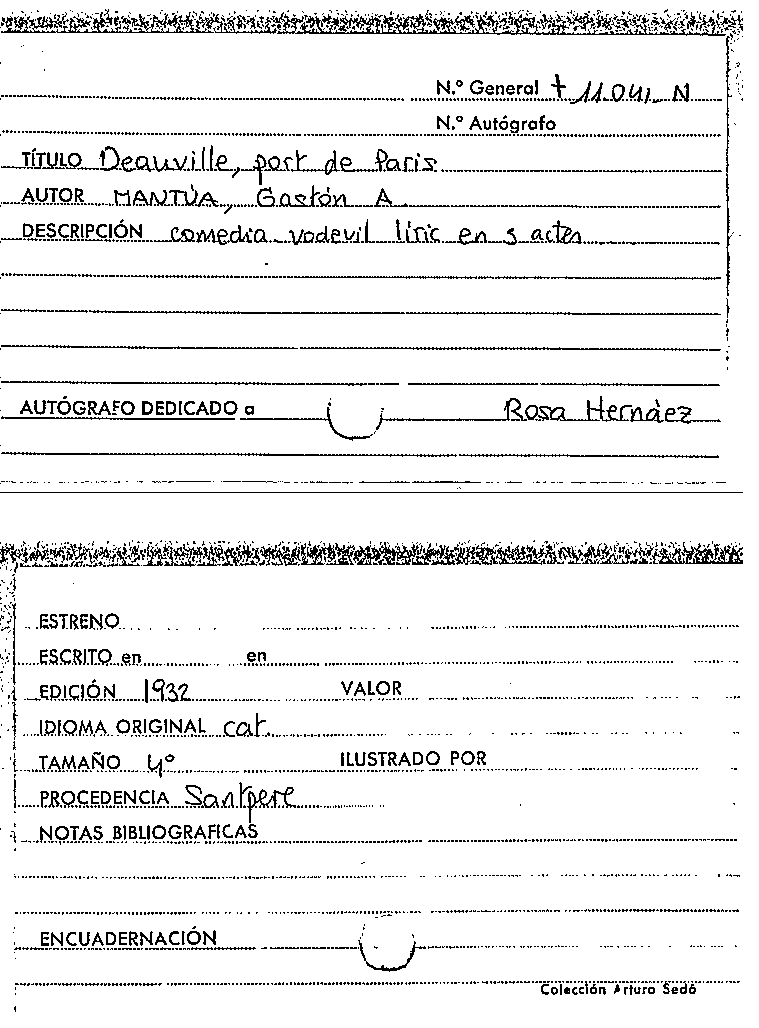 N.º General + 11.041 N
N.º Autógrafo
TÍTULO Deauville, port de París
AUTOR MANTÚA, Gastón A.
DESCRIPCIÓN comedia vodevil líric en 3 actes
AUTÓGRAFO DEDICADO a Rosa Hernáez
ESTRENO
ESCRITO en en
EDICIÓN 1932 VALOR
IDIOMA ORIGINAL cat.
TAMAÑO 4º ILUSTRADO POR
PROCEDENCIA Santpere
NOTAS BIBLIOGRAFICAS
ENCUADERNACIÓN
Colección Arturo Sedó